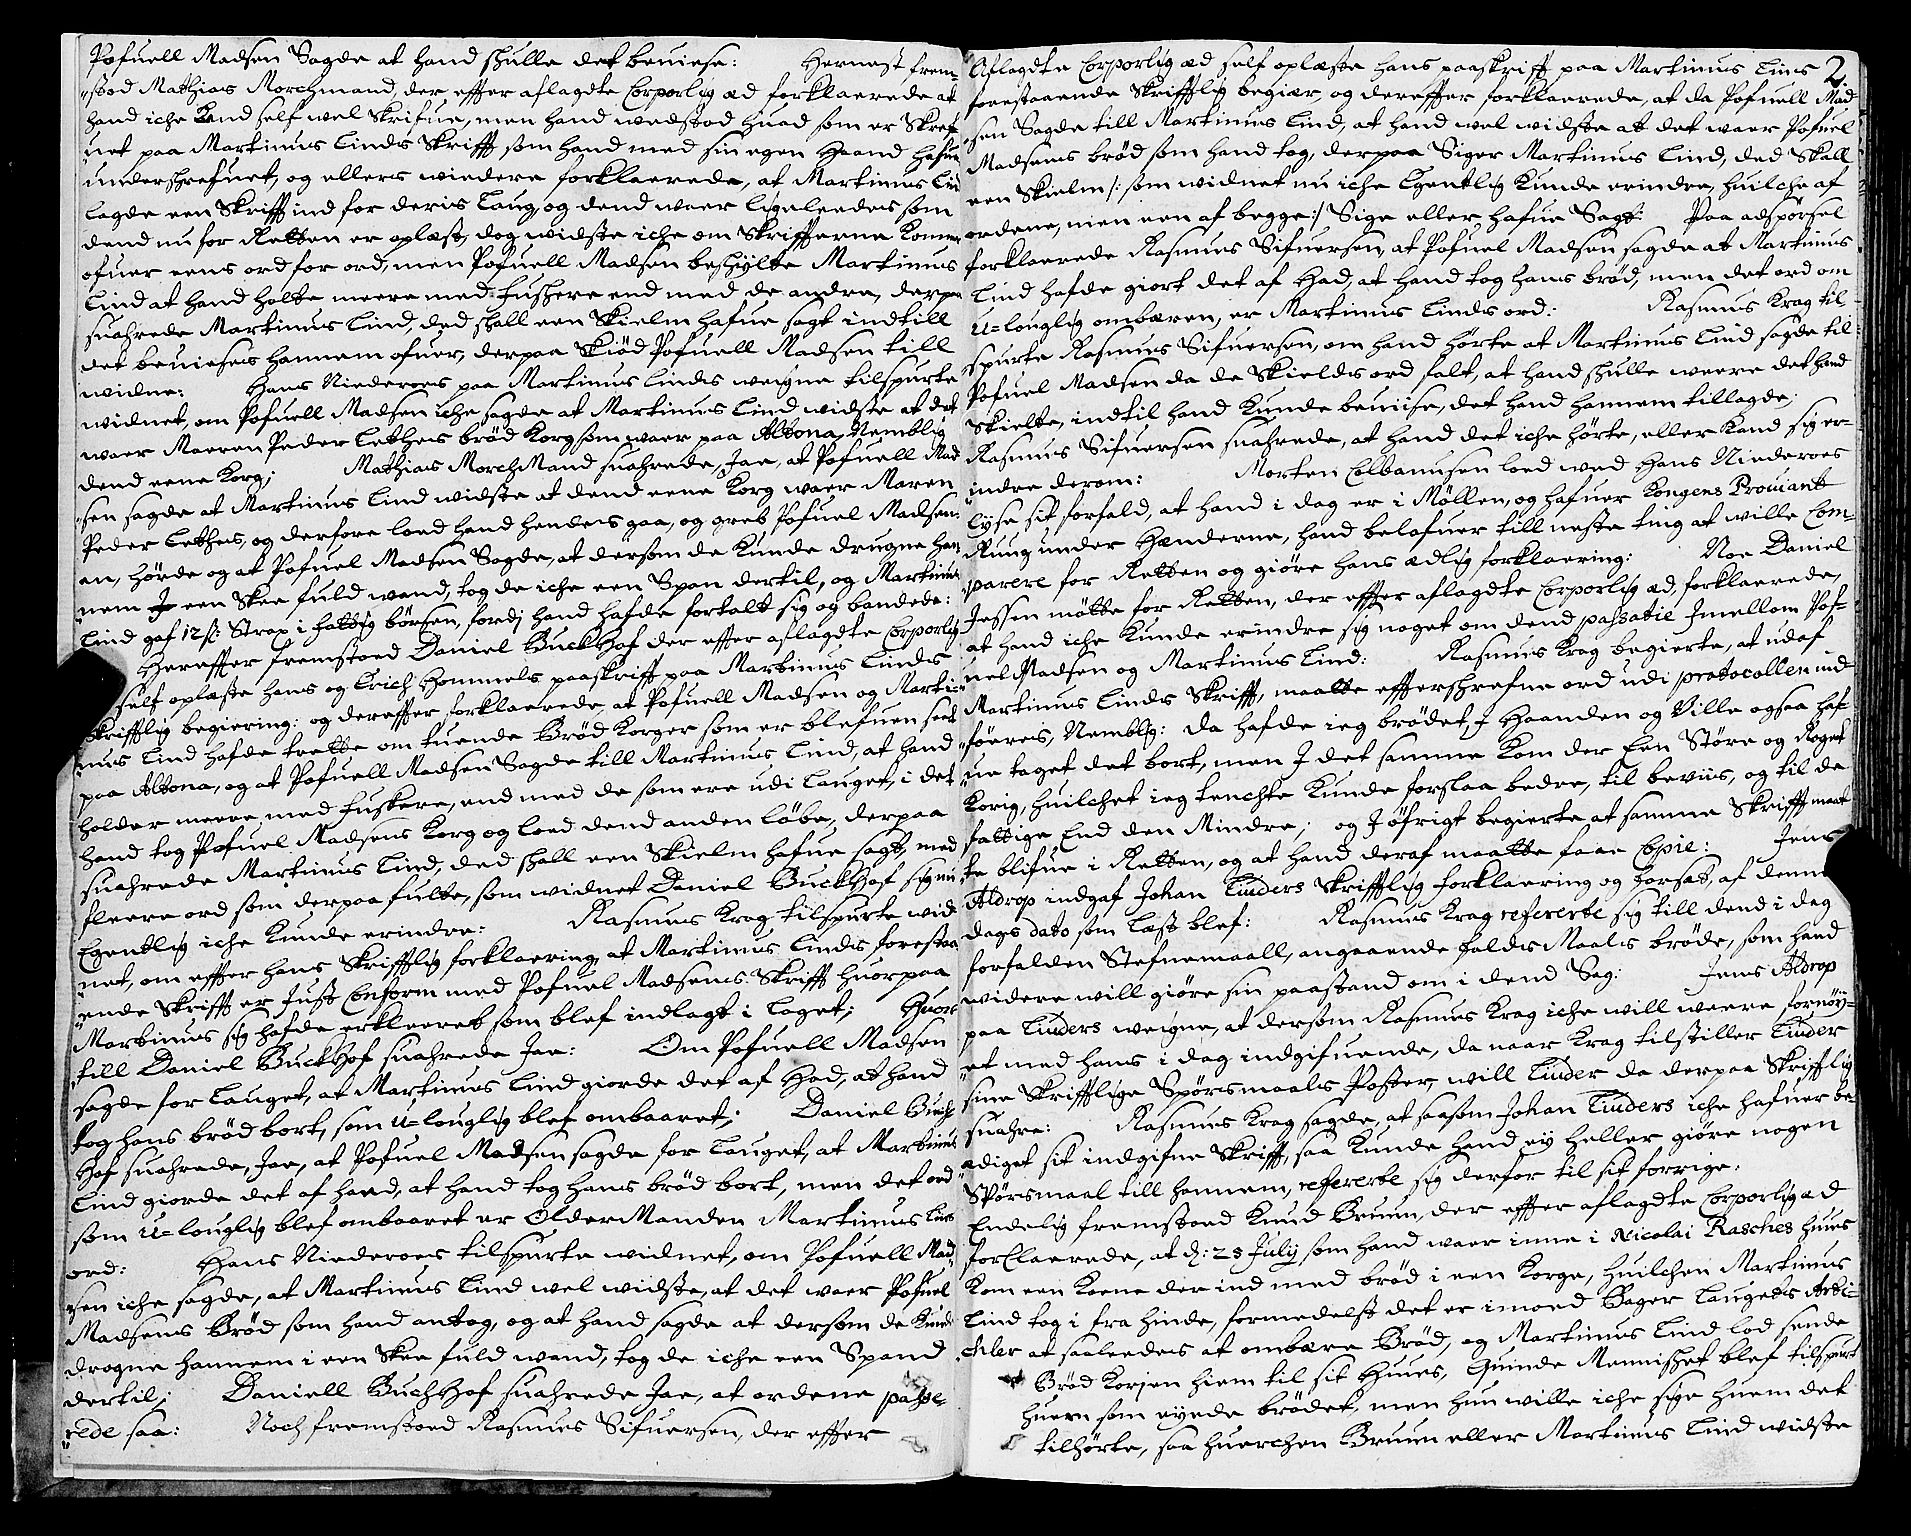 Pofuell Madsen Sagde at hand skulle det beviese: Hernest frem-
stod Mathias Morchmand, der effter aflagdte Corporlig æd forklaerede at
hand iche kand self vel Skrifue, men hand vedstod huad som er Skref-
uet paa Martinus Linds Skrifft som hand med sin egen Haand hafuer
underschrefuet, og ellers viedere forklaerede, at Martinus Lind
lagde een Skrifft ind for deris Laug, og dend vaer ligeleedes som
dend nu for Retten er oplæst, dog vidste iche om Skriffterne kommer
ofuer eens ord for ord, men Pofuell Madsen beskylte Martinus
Lind at hand holte meere med fuschere end med de andre, derpaa
suahrede Martinus Lind, ded skall een Skielm hafue sagt indtill
det bevieses hannem ofuer, derpaa skiød Pofuell Madsen till
vidne: Hans Niederoes paa Martinus Linds veigne tilspurte
vidnet, om Pofuell Madsen iche sagde at Martinus Lind vidste at det
vaer Maren Peder Lethes brød Korg som vaer paa Altona, Nemblig
dend eene Korg; Mathias MorchMand suahrede, Jae, at Pofuell Mad-
sen sagde at Martinus Lind vidste at dend eene Korg vaer Maren
Peder Lethes, og derfore loed hand hendes gaa, og greb Pofuel Madsens
en, hørde og at Pofuel Madsen Sagde, at dersom de kunde drugne han-
nem i een Skee fuld vand, tog de iche een Span dertil, og Martinus
Lind gaf 12 s: Strax i fattig børsen, fordj hand hafde fortalt sig og bandede:
Hereffter fremstoed Daniel BuckHof der effter aflagdte Corporlig
self oplæste hans og Erich Hommels paaskrifft paa Martinus Linds
Skrifftlig begiering: og dereffter forklaerede at Pofuell Madsen og Marti-
nus Lind hafde trette om tuende Brød Korger som er blefuen seet
paa Altona, og at Pofuell Madsen Sagde till Martinus Lind, at hand
holder meere med fuskere, end med de som ere udi Lauget, i det
hand tog Pofuel Madsens Korg og loed dend anden løbe, derpaa
suahrede Martinus Lind, ded skall een Skielm hafue sagt, med
fleere ord som derpaa fulte, som vidnet Daniel BuckHof sig nu
Egentlig iche kunde erindre: Rasmus Krag tilspurte vid-
net, om effter hans Skrifftlig forklaering, at Martinus Linds forestaa-
ende Skrifft er Just Conform med Pofuel Madsens Skrifft huorpaa
Martinus sig hafde erklaeret som blef indlagt i Laget; Huor-
till Daniel BuckHof suahrede Jae: Om Pofuell Madsen
sagde for Lauget, at Martinus Lind giorde det af Had, at hand
tog hans brød bort, som U-louglig blef ombaaret; Daniel Buch-
Hof suahrede, Jae, at Pofuel Madsen sagde for Lauget, at Martinus
Lind giorde det af haed, at hand tog hans brød bort, men det ord
som U-louglig blef ombaaret er OlderManden Martinus Linds
ord: Hans Niederoes tilspurte vidnet, om Pofuell Mad-
sen iche sagde, at Martinus Lind vel vidste, at det vaer Pofuel
Madsens Brød som hand antog, og at hand sagde at dersom de kunde
drogne hannem i een Skee fuld vand, tog de iche een Spand
dertil; Daniell BuchHof suahrede Jae, at ordene passe-
rede saa: Noch fremstoed Rasmus Sifuersen, der effter
2.
Aflagdte Corporlig æd self oplæste hans paaskrifft paa Martinus Linds
forestaaende Skrifftlig begiær, og dereffter forklaerede, at da Pofuell Mad-
sen Sagde till Martinus Lind, at hand vel vidste at det vaer Pofuel
Madsens brød som hand tog, derpaa Siger Martinus Lind, ded Skall
een Skielm /: som vidnet nu iche Egentlig kunde erindre, huilche af
ordene, men een af begge :/ Sige eller hafue Sagt: Paa adspørsel
forklaerede Rasmus Sifuersen, at Pofuel Madsen sagde at Martinus
Lind hafde giort det af Had, at hand tog hans brød, men det ord om
U-louglig ombæren, er Martinus Linds ord: Rasmus Krag til-
spurte Rasmus Sifuersen, om hand hørte at Martinus Lind sagde til
Pofuel Madsen da de Skields ord falt, at hand skulle vaere det hand
Skielte, indtil hand kunde beviise, det hand hannem tillagde;
Rasmus Sifuersen suahrede, at hand det iche hørte, eller kand sig er-
indre derom: Morten Colbanusen loed ved Hans Niederoes
lyse sit forfald, at hand i dag er i Møllen, og hafuer Kongens Proviant
Rung under Hænderne, hand belofuer till neste ting at ville Com-
parere for Retten og giøre hans ædlig forklaering: Noe Daniel
Jessen møtte for Retten, der effter aflagdte Corporlig æd, forklaerede,
at hand iche kunde erindre sig noget om dend passatie Jmellom Pof-
uel Madsen og Martinus Lind: Rasmus Krag begierte, at udaf
Martinus Linds Skrifft, maatte effterschrefne ord udi protocollen ind-
føeres, Nemblig: da hafde ieg brødet J Haanden og Ville ogsaa haf-
ue taget det bort, men J det samme kom der Een Støre og Roget
Korig, huilchet ieg tenchte kunde forslaa bedre, til beviis, og til de
fattige End den Mindre; og J øfrigt begierte at samme Skrifft maat-
te blifue i Retten, og at hand deraf maatte faae Copie: Jens
Aldrop indgaf Johan Tinders Skrifftlig forklaering og forsæt, af denne
dags dato som læst blef: Rasmus Krag refererte sig till dend i dag
forfalden Stefnemaall, angaaende falds Maals brøde, som hand
videre vill giøre sin paastand om i dend Sag: Jens Aldrop
paa Tinders veigne, at dersom Rasmus Krag iche will vaere fornøy-
et med hans i dag indgifuende, da naar Krag tilstiller Tinder
sine Skrifftlige Spørsmaals Poster, will Tinder da derpaa Skrifftlig
suahre: Rasmus Krag sagde, at saasom Johan Tinders iche hafuer be-
ædiget sit indgifne Skrifft, saa kunde hand ey heller giøre nogen
Spørsmaal till hannem, refererte sig derfor til sit forrige:
Endelig fremstoed Knud Bruun, der effter aflagdte Corporlig æd
forClaerede, at d: 25 July som hand vaer inne i Nicolai Rasches huus
kom een Kone der ind med brød i een Korge, huilchen Martinus
Lind tog i fra hinde, formedelst det er imoed Bager Laugets Arti-
chler at saaleedes at ombære Brød, og Martinus Lind lod sende
Brød Korgen hiem til sit Huus, Quinde Mennisket blef tilspurt
huem som eyede brødet, men hun ville iche sige huem det
tilhørte, saa huerchen Bruun eller Martinus Lind vidste